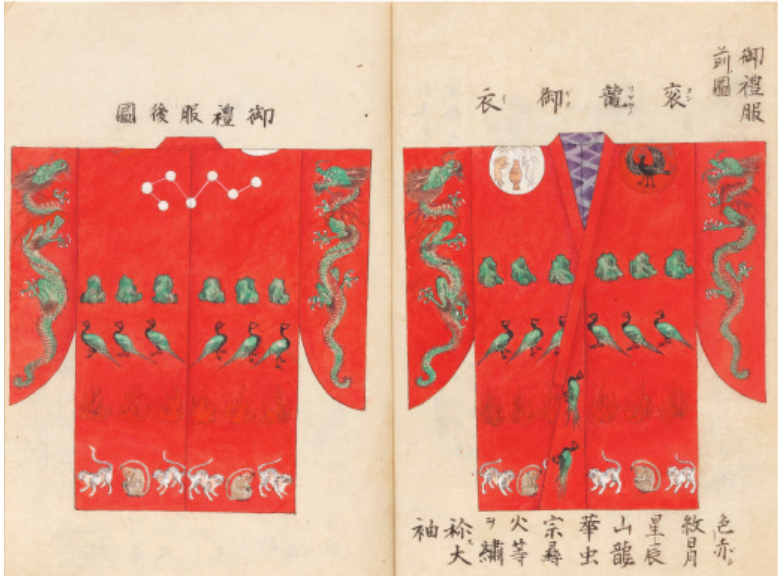 御禮服
前圖
袞龍御衣
色赤シ
紋日月
星辰
山龍
華虫
宗彝
火等
ヲ繍
大
袖
御禮服後圖